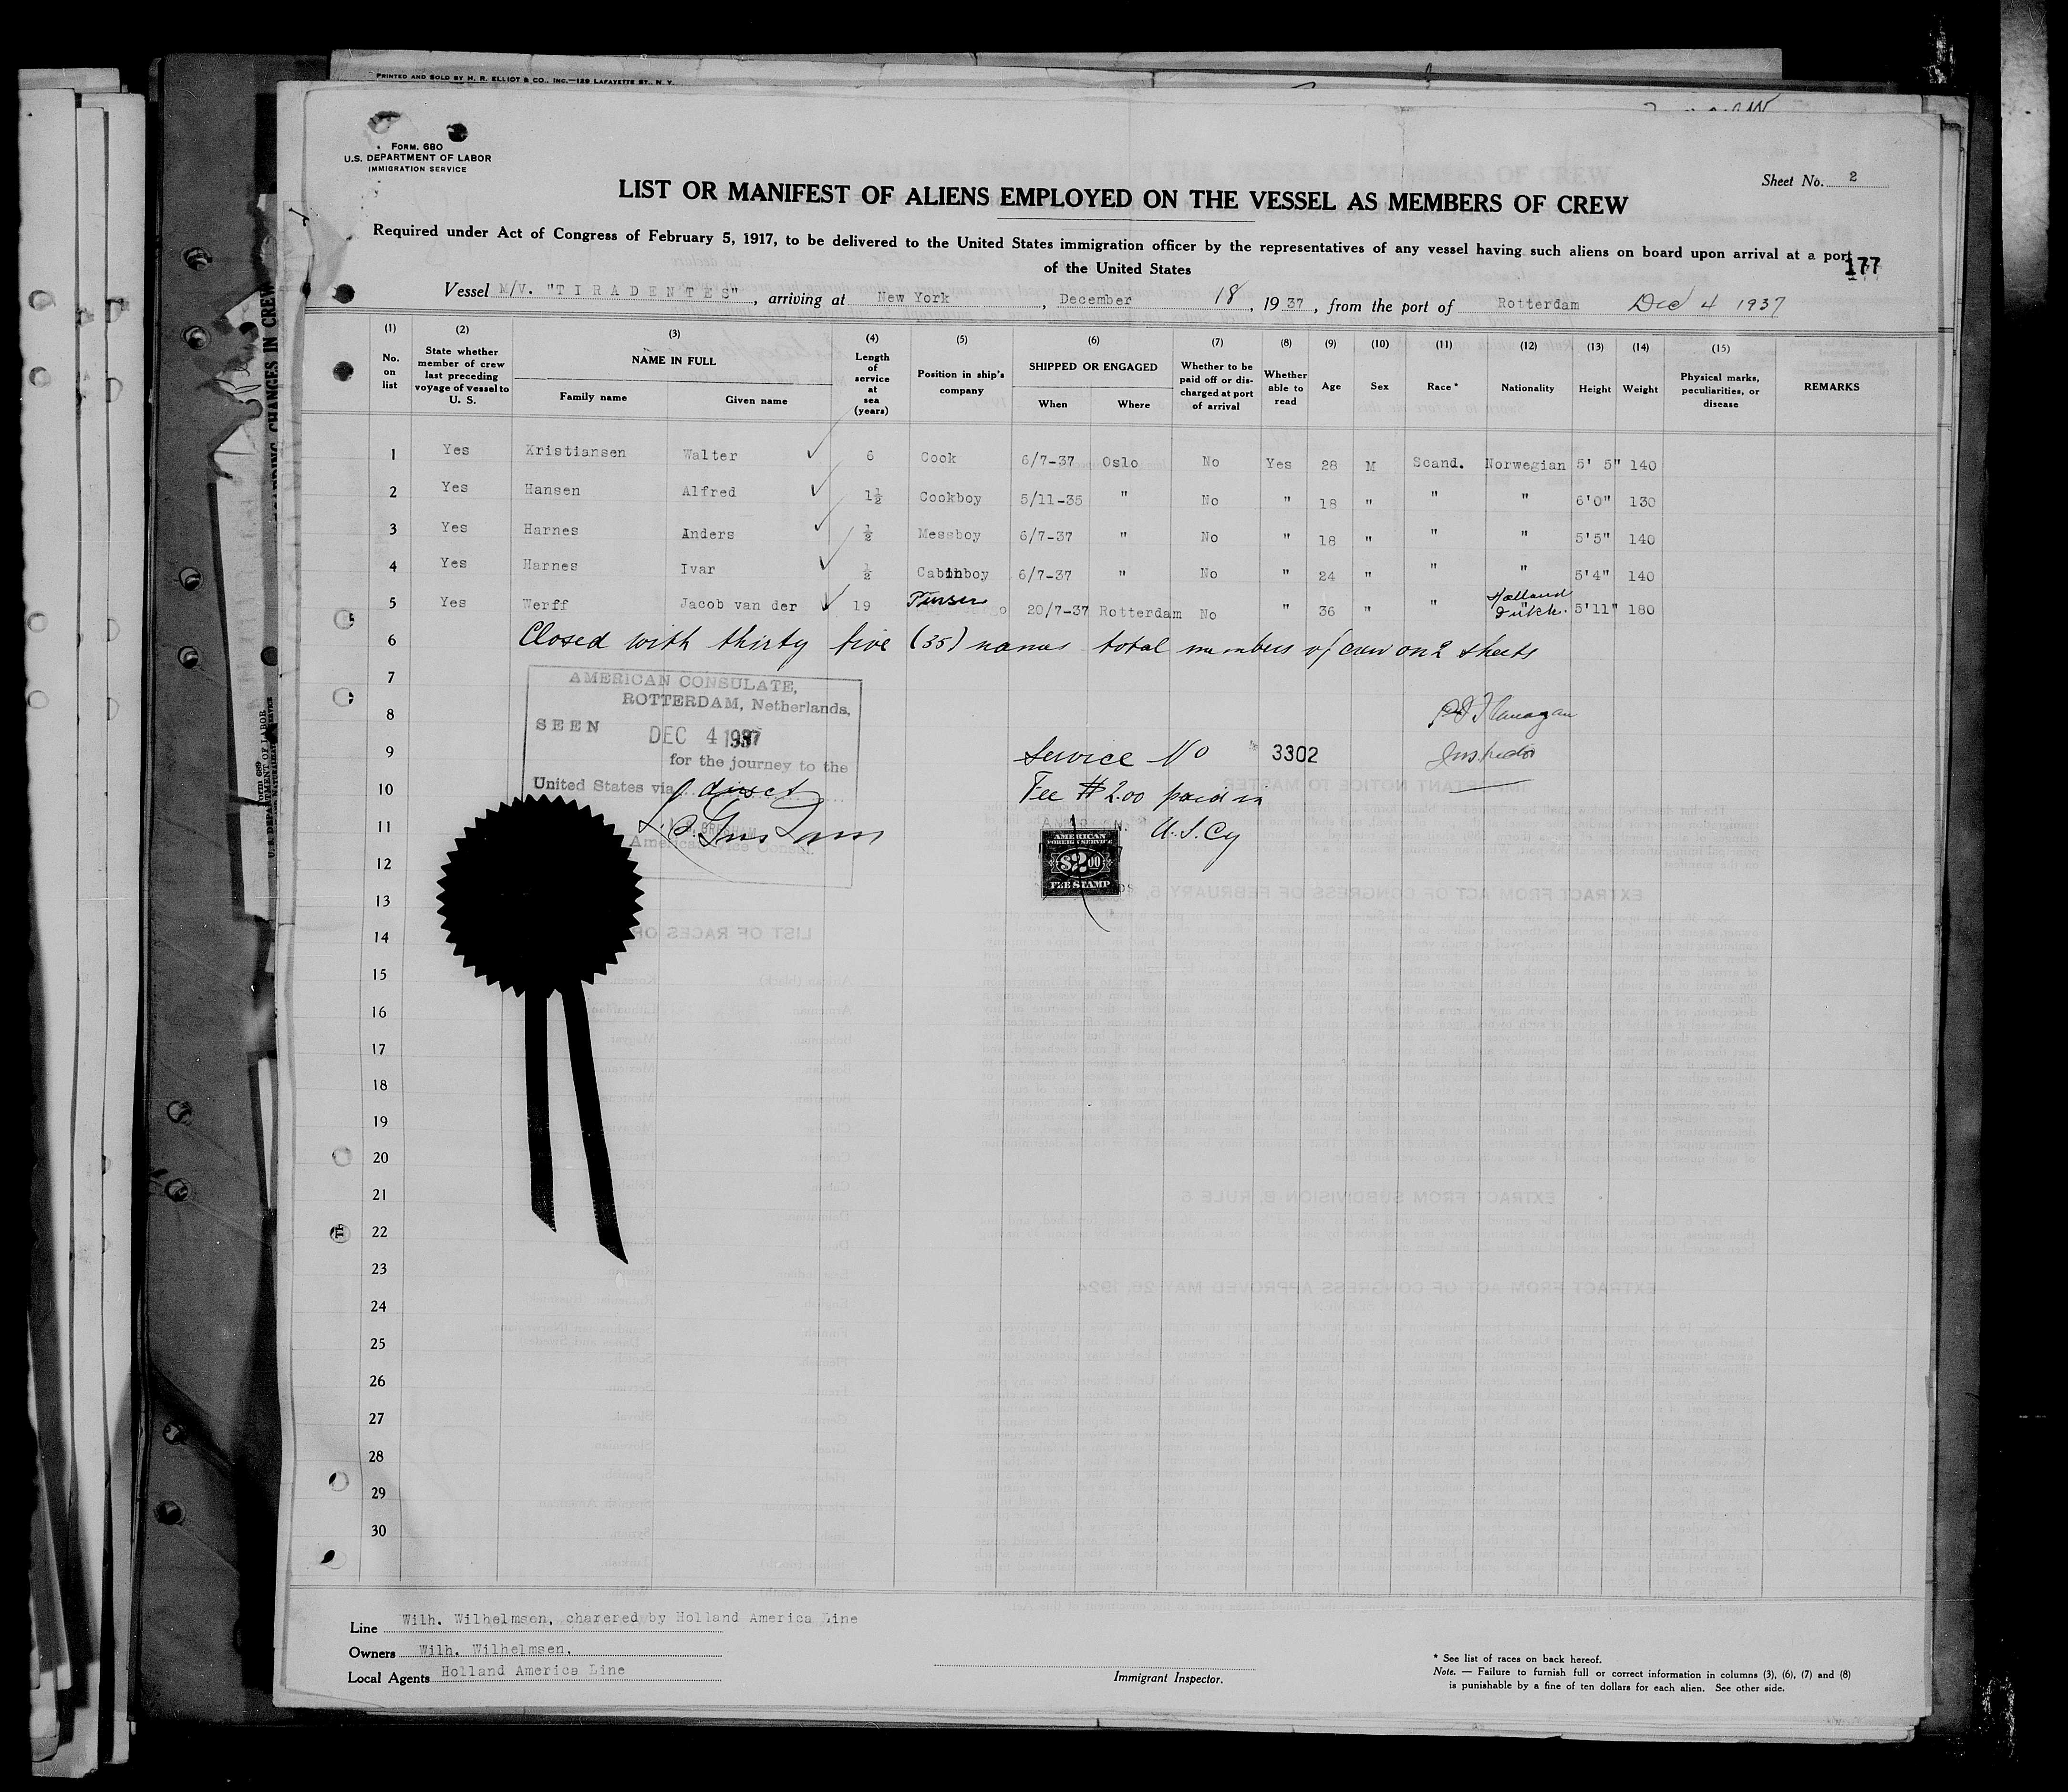 PRINTED AND SOLD BY H. R. ELLIOT & CO., INC.—129 LAFAYETTE ST., N. Y.
FORM. 680
U.S. DEPARTMENT OF LABOR
IMMIGRATION SERVICE
Sheet No. 2
LIST OR MANIFEST OF ALIENS EMPLOYED ON THE VESSEL AS MEMBERS OF CREW
Required under Act of Congress of February 5, 1917, to be delivered to the United States immigration officer by the representatives of any vessel having such aliens on board upon arrival at a port
of the United States
177
Vessel M/V. "TIRADENTES", arriving at New York, December 18, 1937, from the port of Rotterdam Dec 4 1937
(1) No. on list
(2) State whether member of crew last preceding voyage of vessel to U. S.
(3) NAME IN FULL Family name Given name
(4) Length of service at sea (years)
(5) Position in ship's company
(6) SHIPPED OR ENGAGED When Where
(7) Whether to be paid off or discharged at port of arrival
(8) Whether able to read
(9) Age
(10) Sex
(11) Race *
(12) Nationality
(13) Height
(14) Weight
(15) Physical marks, peculiarities, or disease
REMARKS
1 Yes Kristiansen Walter 6 Cook 6/7-37 Oslo No Yes 28 M Scand. Norwegian 5' 5" 140
2 Yes Hansen Alfred 1½ Cookboy 5/11-36 " No " 18 " " " 6'0" 130
3 Yes Harnes Anders ½ Messboy 6/7-37 " No " 18 " " " 5'5" 140
4 Yes Harnes Ivar ½ Cabinboy 6/7-37 " No " 24 " " " 5'4" 140
5 Yes Werff Jacob van der 19 Purser 20/7-37 Rotterdam No " 36 " " Holland Dutch. 5'11" 180
6 Closed with thirty five (35) names total members of crew on 2 sheets
7
8
9
10
11
12
13
14
15
16
17
18
19
20
21
22
23
24
25
26
27
28
29
30
AMERICAN CONSULATE,
ROTTERDAM, Netherlands,
SEEN DEC 4 1937
for the journey to the
United States via direct
American Vice Consul.
Inspector
Service No 3302
Fee $2.00 paid in
U.S.Cy
AMERICAN
FOREIGN SERVICE
$2.00
FEE STAMP
Line Wilh. Wilhelmsen, charered by Holland America Line
Owners Wilh. Wilhelmsen.
Local Agents Holland America Line
Immigrant Inspector.
* See list of races on back hereof.
Note. — Failure to furnish full or correct information in columns (3), (6), (7) and (8)
is punishable by a fine of ten dollars for each alien. See other side.